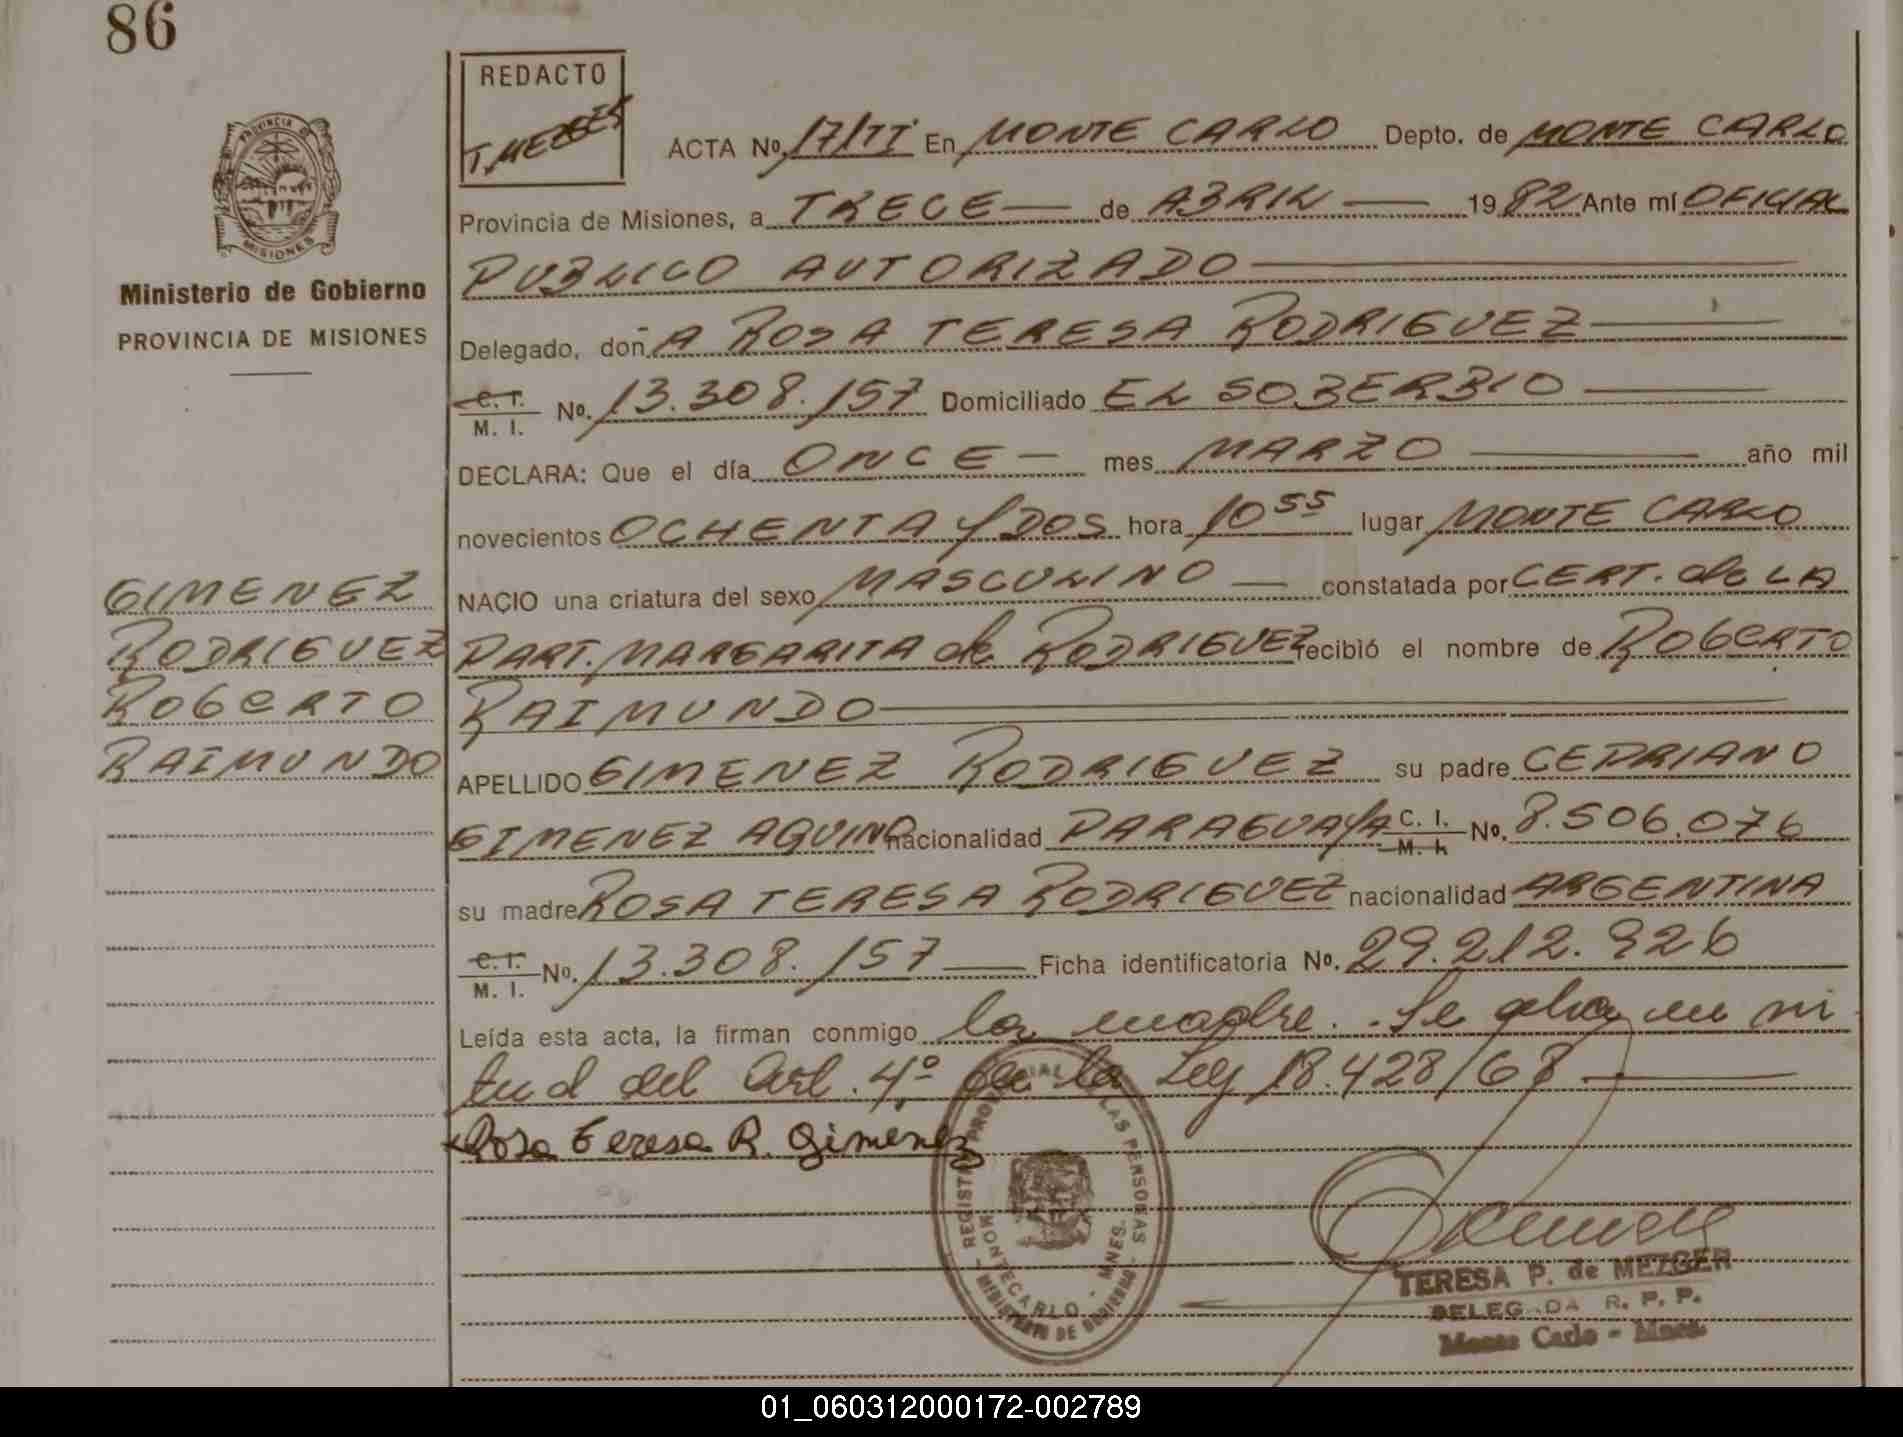 86
REDACTO
T. MEZGER
PROVINCIA DE
MISIONES
Ministerio de Gobierno
PROVINCIA DE MISIONES
ACTA No. 17/TI En MONTE CARLO Depto. de MONTE CARLO
Provincia de Misiones, a TRECE — de ABRIL — 1982 Ante mí OFICIAL
PUBLICO AUTORIZADO —
Delegado, doñA ROSA TERESA RODRIGUEZ —
C. I. / M. I. No. 13.308.157 Domiciliado EL SOBERBIO —
DECLARA: Que el día ONCE — mes MARZO — año mil
novecientos OCHENTA y DOS hora 10 55 lugar MONTE CARLO
NACIO una criatura del sexo MASCULINO — constatada por CERT. de LA
PART. MARGARITA de RODRIGUEZ recibió el nombre de ROBERTO
RAIMUNDO —
APELLIDO GIMENEZ RODRIGUEZ su padre CEPRIANO
GIMENEZ AQUINO nacionalidad PARAGUAYA C. I. / M. I. No. 8.506.076
su madre ROSA TERESA RODRIGUEZ nacionalidad ARGENTINA
C. I. / M. I. No. 13.308.157 — Ficha identificatoria No. 29.212.926
Leída esta acta, la firman conmigo la madre. Se labra en vir
tud del Art. 4º de la Ley 18.428/68 —
Rosa Teresa R. Gimenez
GIMENEZ
RODRIGUEZ
ROBERTO
RAIMUNDO
REGISTRO PROVINCIAL DE LAS PERSONAS
MONTECARLO - MNES.
MINISTERIO DE GOBIERNO
TERESA P. de MEZGER
DELEGADA R. P. P.
Monte Carlo - Mnes.
01_060312000172-002789